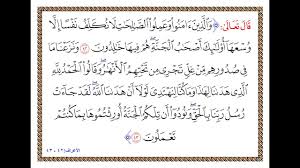 قال تعالى: ﴿وَالَّذِينَ ءَامَنُوا وَعَمِلُوا الصَّالِحَاتِ لَا نُكَلِّفُ نَفْسًا إِلَّا
وُسْعَهَا أُولَٰئِكَ أَصْحَابُ الْجَنَّةِ هُمْ فِيهَا خَالِدُونَ ٤٢ وَنَزَعْنَا مَا
فِي صُدُورِهِم مِّنْ غِلٍّ تَجْرِي مِن تَحْتِهِمُ الْأَنْهَارُ وَقَالُوا الْحَمْدُ لِلَّهِ
الَّذِي هَدَانَا لِهَٰذَا وَمَا كُنَّا لِنَهْتَدِيَ لَوْلَا أَنْ هَدَانَا اللَّهُ لَقَدْ جَاءَتْ
رُسُلُ رَبِّنَا بِالْحَقِّ وَنُودُوا أَن تِلْكُمُ الْجَنَّةُ أُورِثْتُمُوهَا بِمَا كُنتُمْ
تَعْمَلُونَ ٤٣﴾
الأعراف: ٤٢ - ٤٣